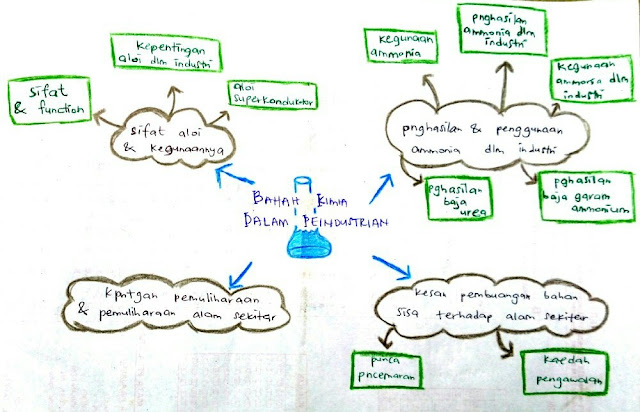 sifat
& function
kepentingan
aloi dlm industri
aloi
superkonduktor
sifat aloi
& kegunaannya
kegunaan
ammonia
pnghasilan
ammonia dlm
industri
kegunaan
ammonia dlm
industri
pnghasilan & penggunaan
ammonia dlm industri
pghasilan
baja
urea
pghasilan
baja garam
ammonium
BAHAH KIMIA
DALAM PEINDUSTRIAN
kpntgan pemuliharaan
& pemuliharaan alam sekitar
kesan pembuangan bahan
sisa terhadap alam sekitar
punca
pncemaran
kaedah
pengawalan